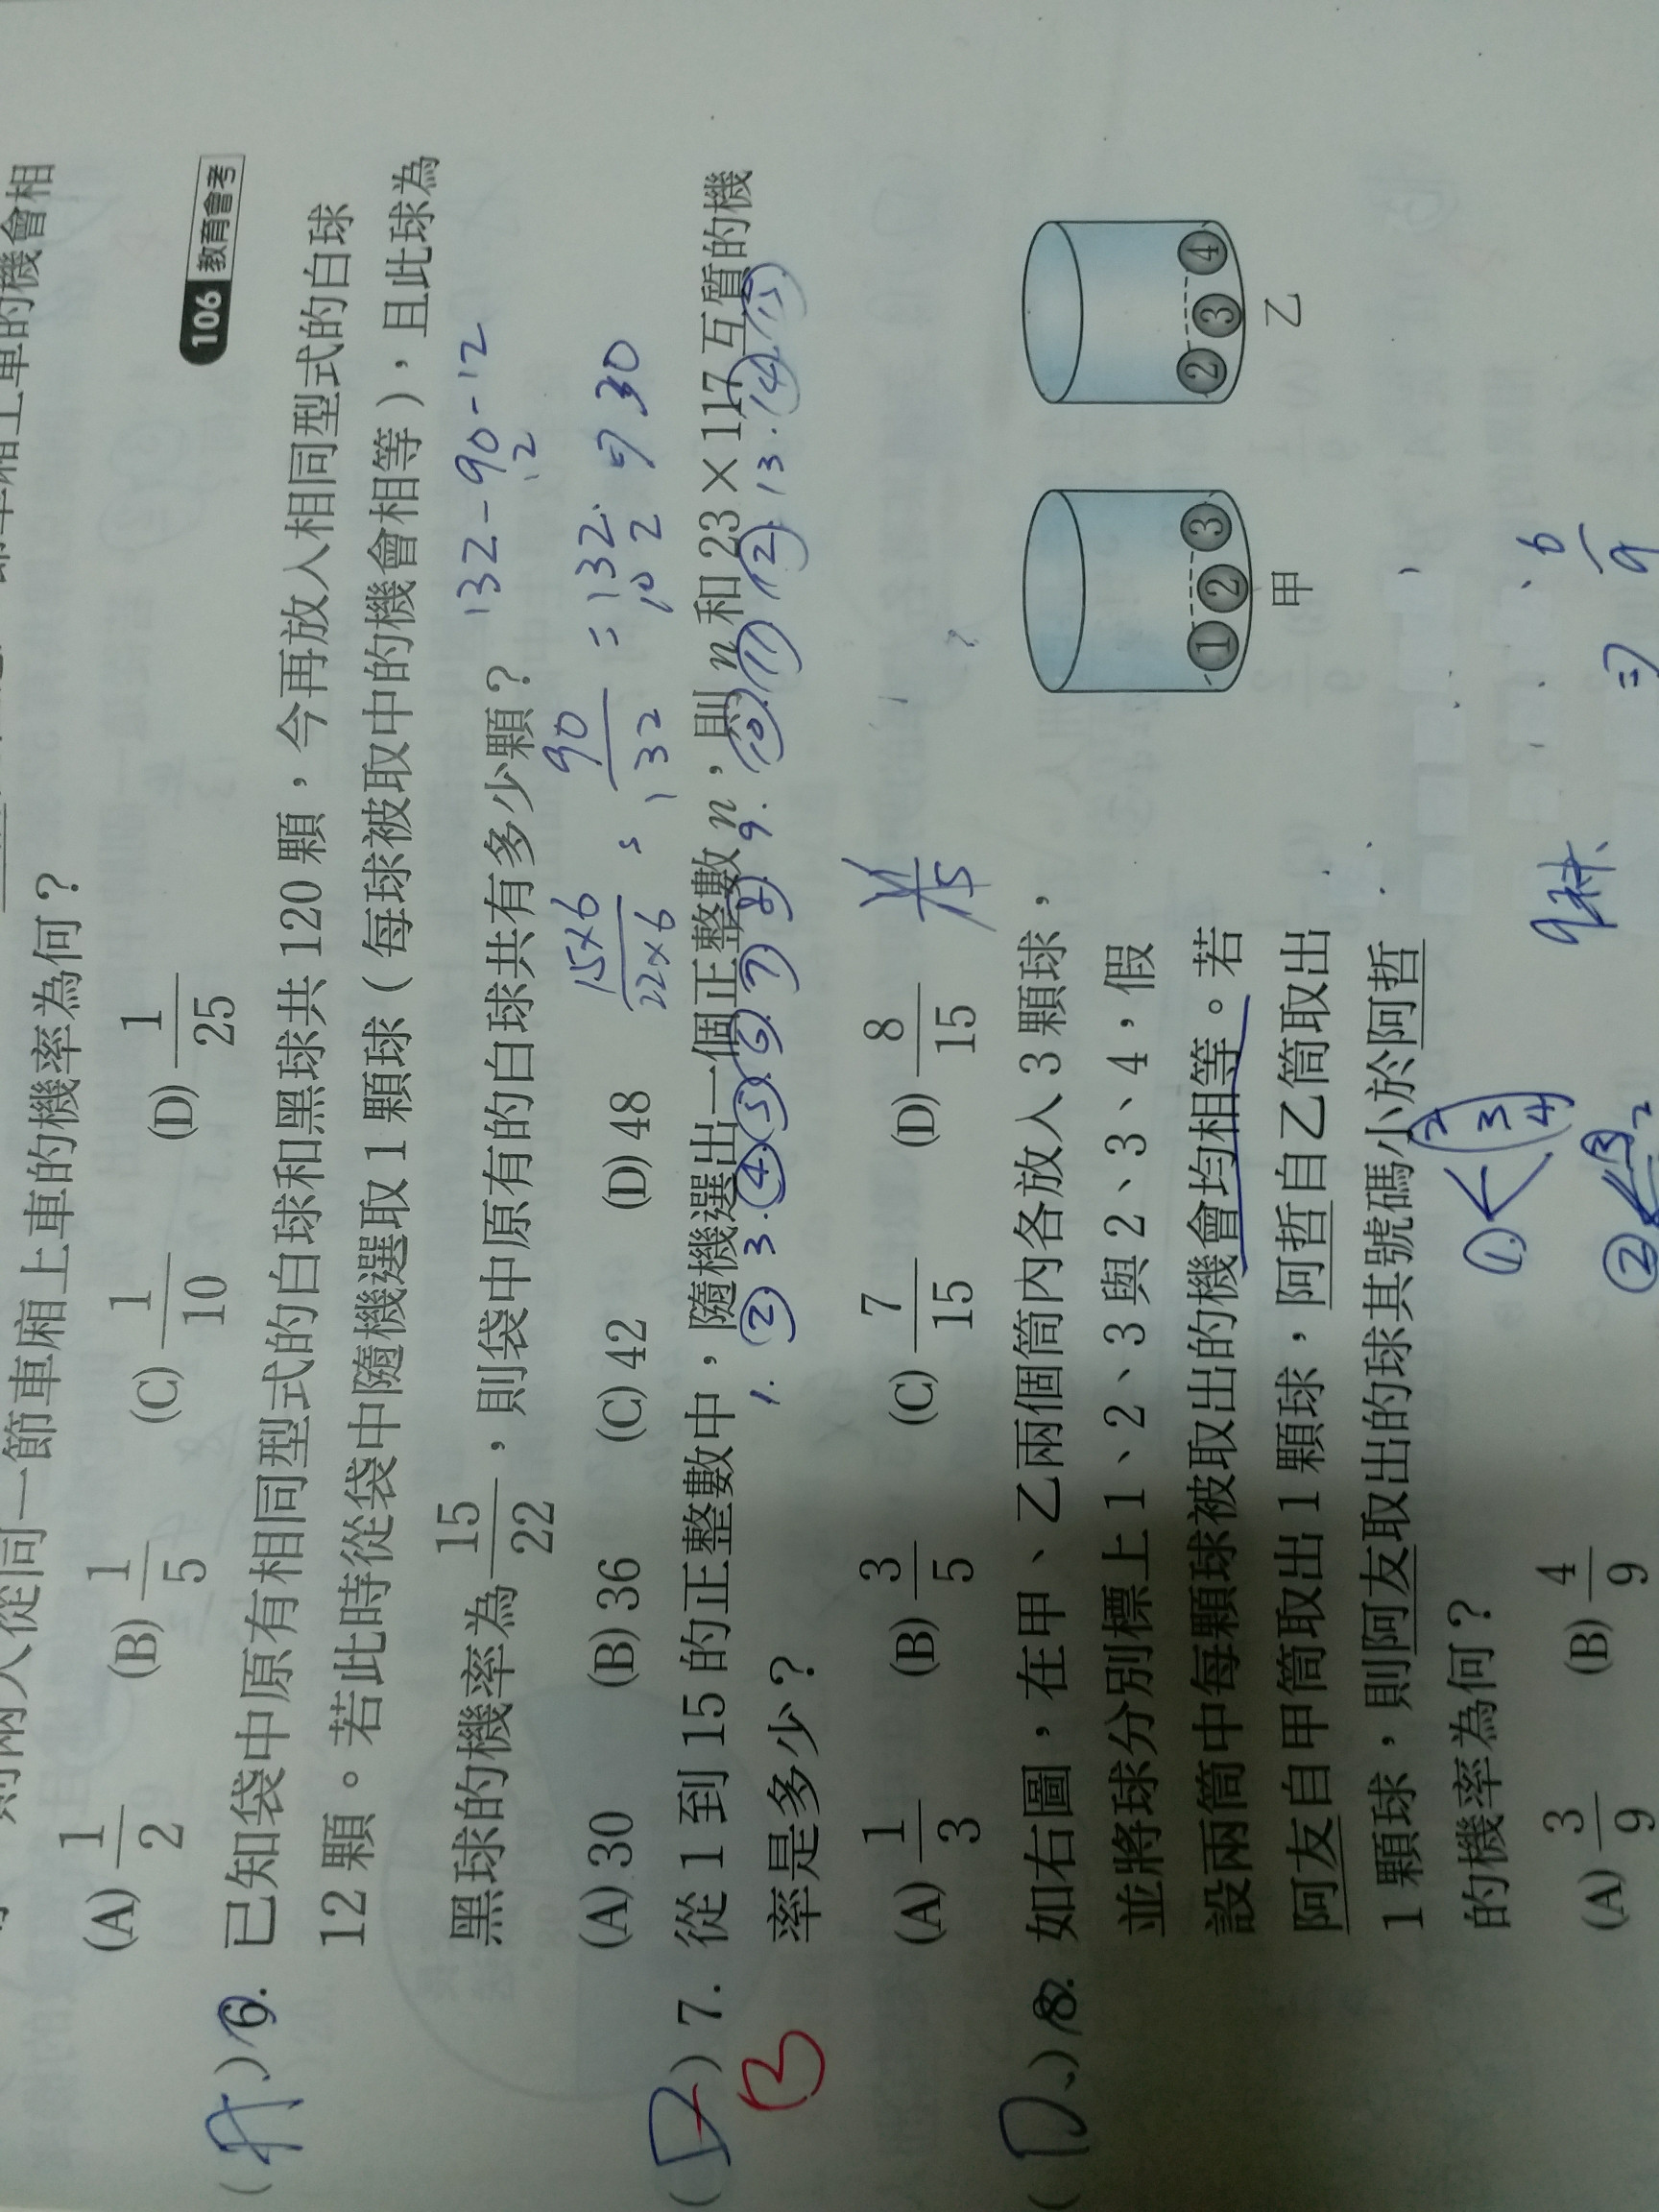 則兩人從同一節車廂上車的機率為何？
(A) 1/2 (B) 1/5 (C) 1/10 (D) 1/25
106 教育會考
(A) 6. 已知袋中原有相同型式的白球和黑球共 120 顆，今再放入相同型式的白球
12 顆。若此時從袋中隨機選取 1 顆球（每球被取中的機會相等），且此球為
黑球的機率為 15/22，則袋中原有的白球共有多少顆？
132-90-12
15×6/22×6 = 90/132
⇒ 30
(A) 30 (B) 36 (C) 42 (D) 48
(D) 7. 從 1 到 15 的正整數中，隨機選出一個正整數 n，則 n 和 23×117 互質的機
B
率是多少？
1. ② 3. ④ ⑤ ⑥ ⑦ ⑧ 9. ⑩ ⑪ ⑫ 13. ⑭ ⑮
(A) 1/3 (B) 3/5 (C) 7/15 (D) 8/15
(D) 8. 如右圖，在甲、乙兩個筒內各放入 3 顆球，
並將球分別標上 1、2、3 與 2、3、4，假
設兩筒中每顆球被取出的機會均相等。若
阿友自甲筒取出 1 顆球，阿哲自乙筒取出
1 顆球，則阿友取出的球其號碼小於阿哲
的機率為何？
1 2 3
甲
2 3 4
乙
① < 2 3 4
② < 3
9種
⇒ 6/9
(A) 3/9 (B) 4/9